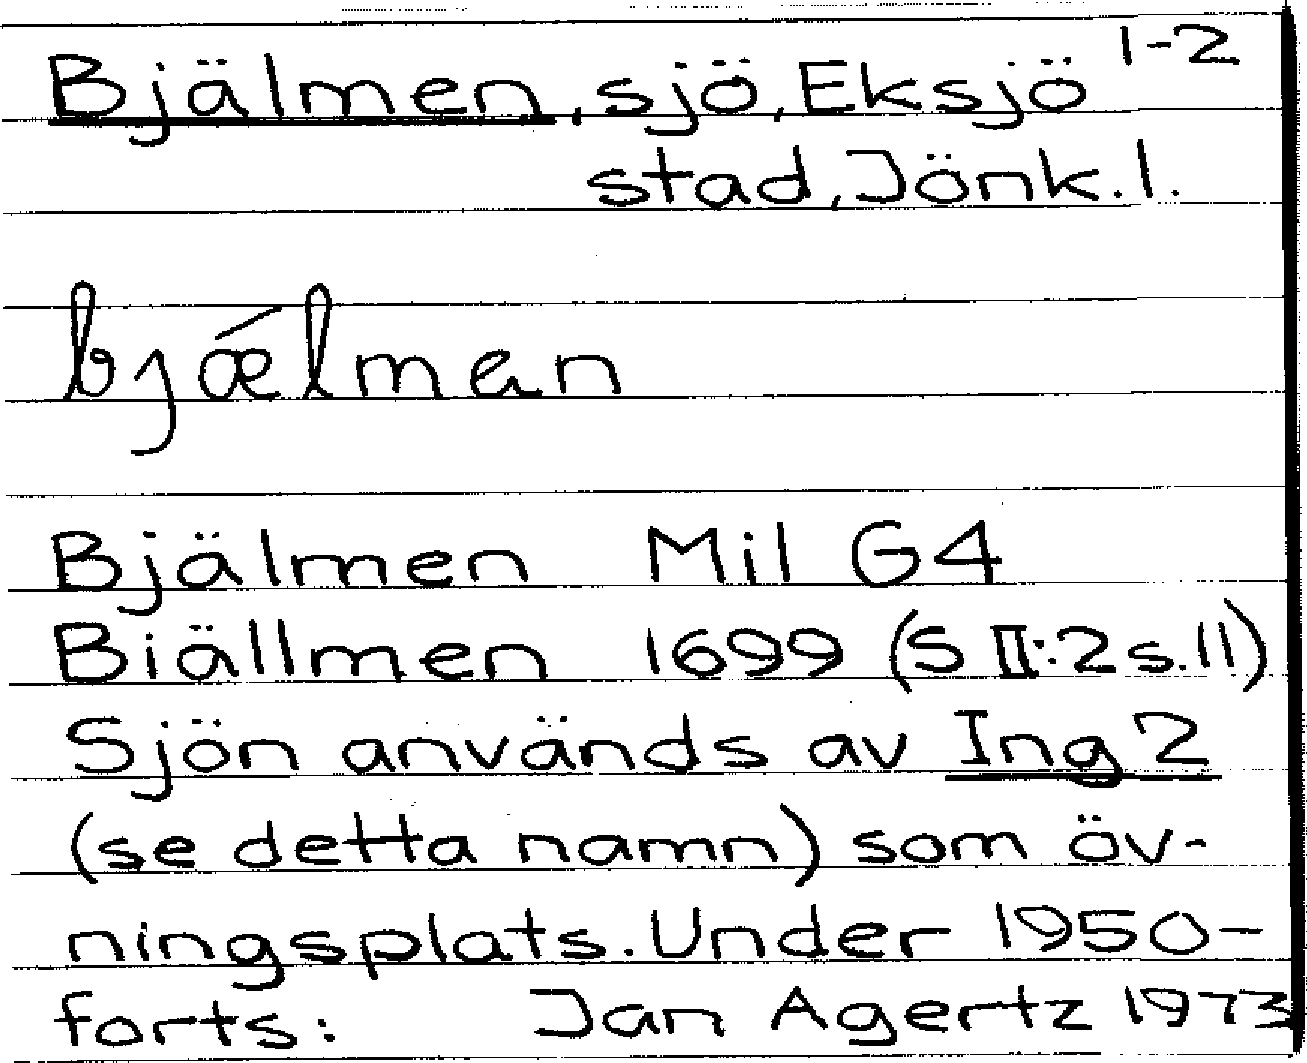 Bjälmen, sjö, Eksjö 1-2
stad, Jönk. l.
bjǽlmen
Bjälmen Mil G4
Biällmen 1699 (S II:2 s.11)
Sjön används av Ing 2
(se detta namn) som öv-
ningsplats. Under 1950-
forts: Jan Agertz 1973